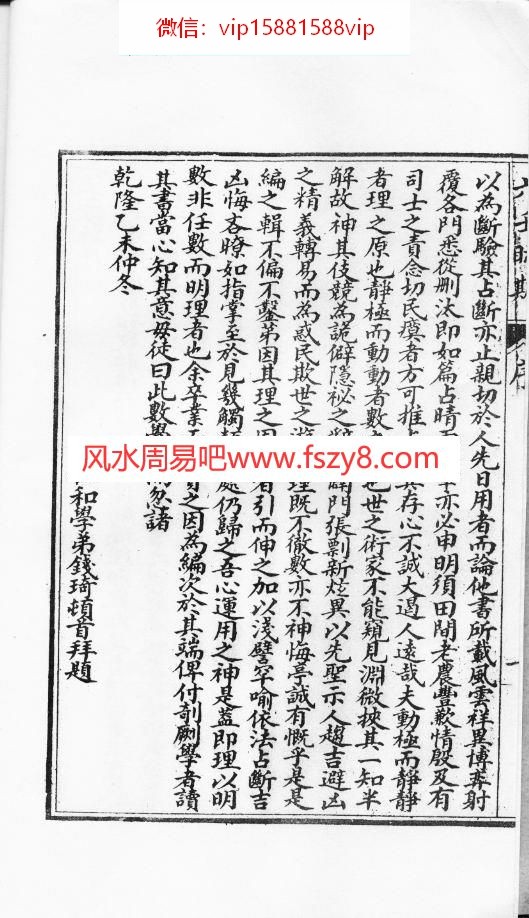 微信：vip15881588vip
以為斷驗其占斷亦止親切於人先日用者而論他書所載風雲祥異博弈射
覆各門悉從刪汰即如篇占晴
亦必申明須田間老農豐歉情殷及有
司士之責念切民瘼者方可推
其存心不誠大過人遠哉夫動極而靜靜
者理之原也靜極而動動者數
也世之術家不能窺見淵微挾其一知半
解故神其伎競為詭僻隱祕之
辟門張剽新炫異以先聖示人趨吉避凶
之精義轉易而為惑民欺世之
理既不徹數亦不神悔亭誠有慨乎是是
編之輯不偏不鑿第因其理之
者引而伸之加以淺譬罕喻依法占斷吉
凶悔吝瞭如指掌至於見幾觸
處仍歸之吾心運用之神是蓋即理以明
數非任數而明理者也余卒業
之因為編次於其端俾付剞劂學者讀
其書當心知其意毋徒曰此數學
忽諸
乾隆乙未仲冬
和學弟錢琦頓首拜題
風水周易吧www.fszy8.com